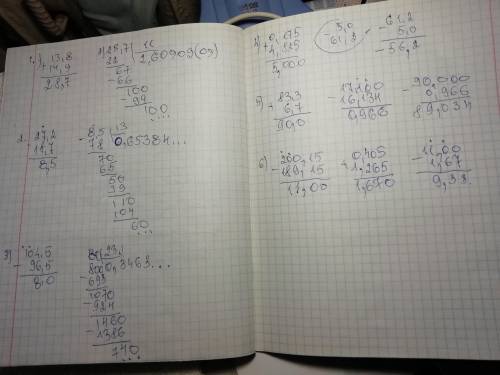 1.) 13,8
+ 14,9
28,7
2) 28,7 | 11
22 | 2,60909(09)
67
- 66
100
- 99
100
...
2. 27,2
8,5
- 8,5 | 13
78 | 0,65384...
70
65
50
39
110
104
60
...
3) 104,5
- 96,5
8,0
80 | 231
800 | 0,3463...
- 693
1070
- 924
1460
- 1386
740
...
4) 0,875
+ 4,125
5,000
5,0
- 61,2
- 61,2
5,0
- 56,2
5) 83,3
+ 6,7
90,0
- 17,100
16,134
0,966
- 90,000
0,966
89,034
6) 200,15
- 189,15
11,00
+ 0,405
1,265
1,670
- 11,00
1,67
9,33